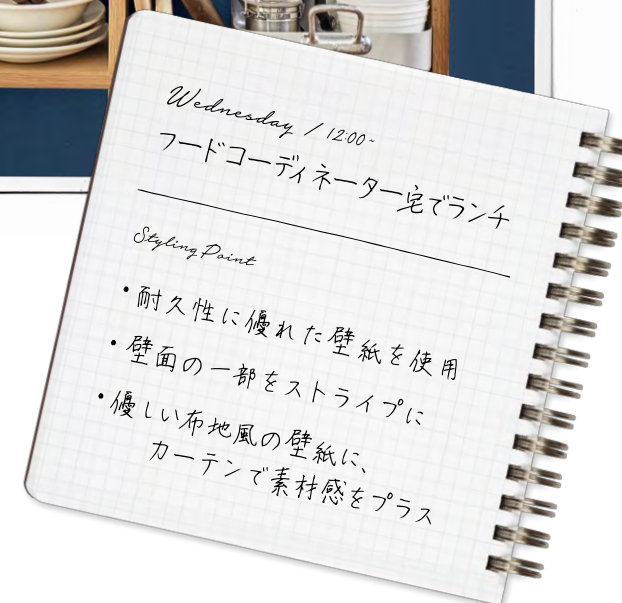 Wednesday / 12:00~
フードコーディネーター宅でランチ
Styling Point
・耐久性に優れた壁紙を使用
・壁面の一部をストライプに
・優しい布地風の壁紙に、
カーテンで素材感をプラス